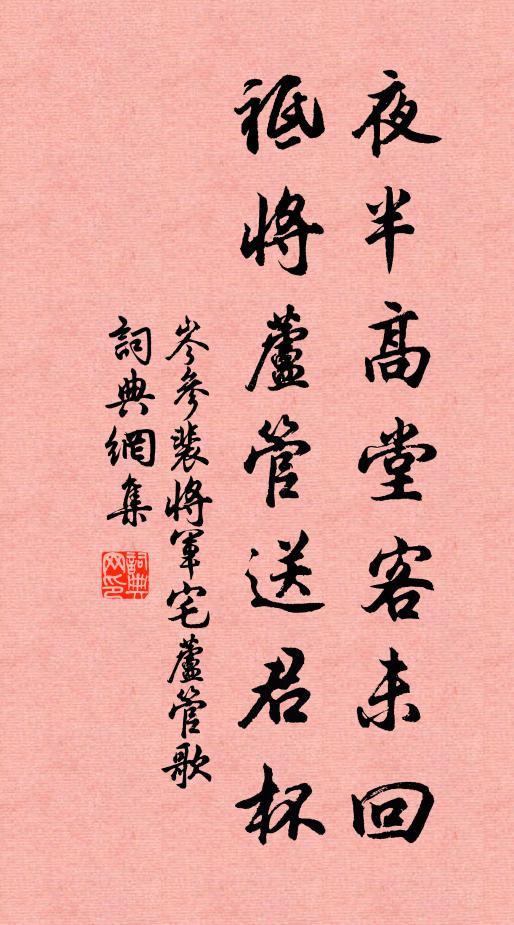 夜半高堂客未回
祗將蘆管送君杯
岑參裴將軍宅蘆管歌
詞典網集
詞典網印